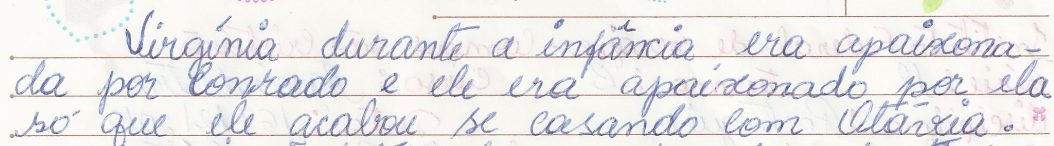 Virgínia durante a infância era apaixona-
da por Conrado e ele era apaixonado por ela
só que ele acabou se casando com Otávia.